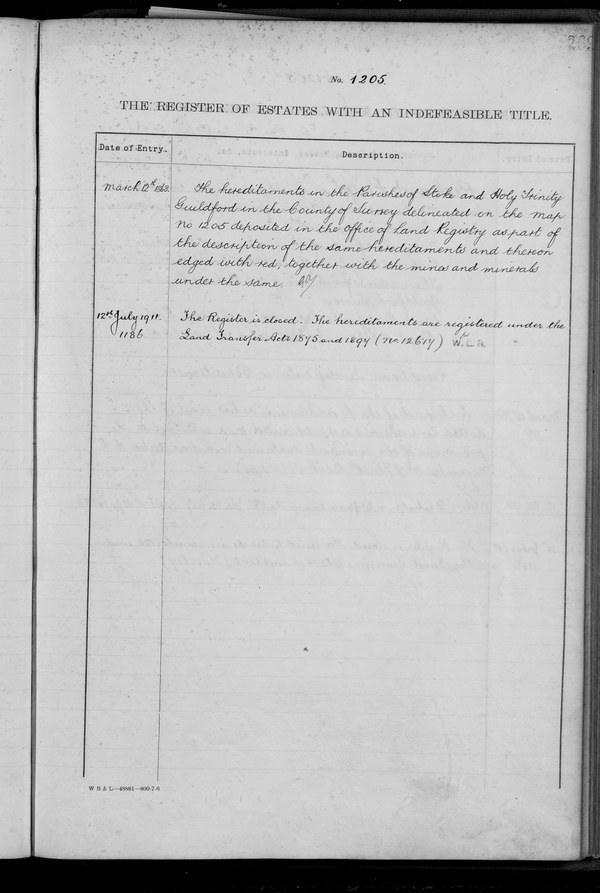 No. 1205.
THE REGISTER OF ESTATES WITH AN INDEFEASIBLE TITLE.
Date of Entry.
Description.
March 12th
The hereditaments in the Parishes of Stoke and Holy Trinity
Guildford in the County of Surrey delineated on the map
No 1205 deposited in the office of Land Registry as part of
the description of the same hereditaments and thereon
edged with red, together with the mines and minerals
under the same.
12th July 1911.
1186
The Register is closed. The hereditaments are registered under the
Land Transfer Acts 1875 and 1897 (No. 12617)
W B & L—48881—800-7-6